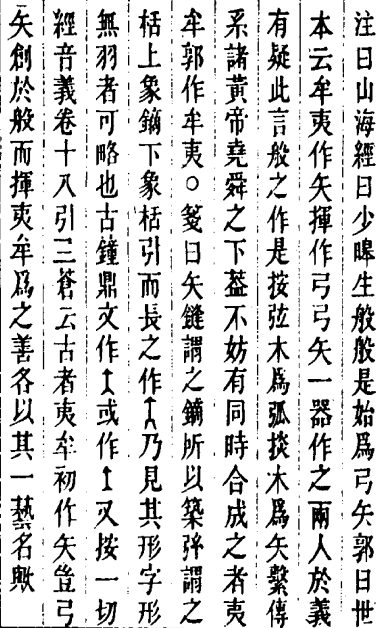 注曰山海經曰少皡生般般是始爲弓矢郭曰世
本云牟夷作矢揮作弓弓矢一器作之兩人於義
有疑此言般之作是按弦木爲弧掞木爲矢繫傳
系諸黃帝堯舜之下葢不妨有同時合成之者夷
牟郭作牟夷○箋曰矢鏠謂之鏑所以築弣謂之
栝上象鏑下象栝引而長之作乃見其形字形
無羽者可略也古鐘鼎文作或作又按一切
經音義卷十八引三蒼云古者夷牟初作矢豈弓
矢創於般而揮夷牟爲之善各以其一藝名歟